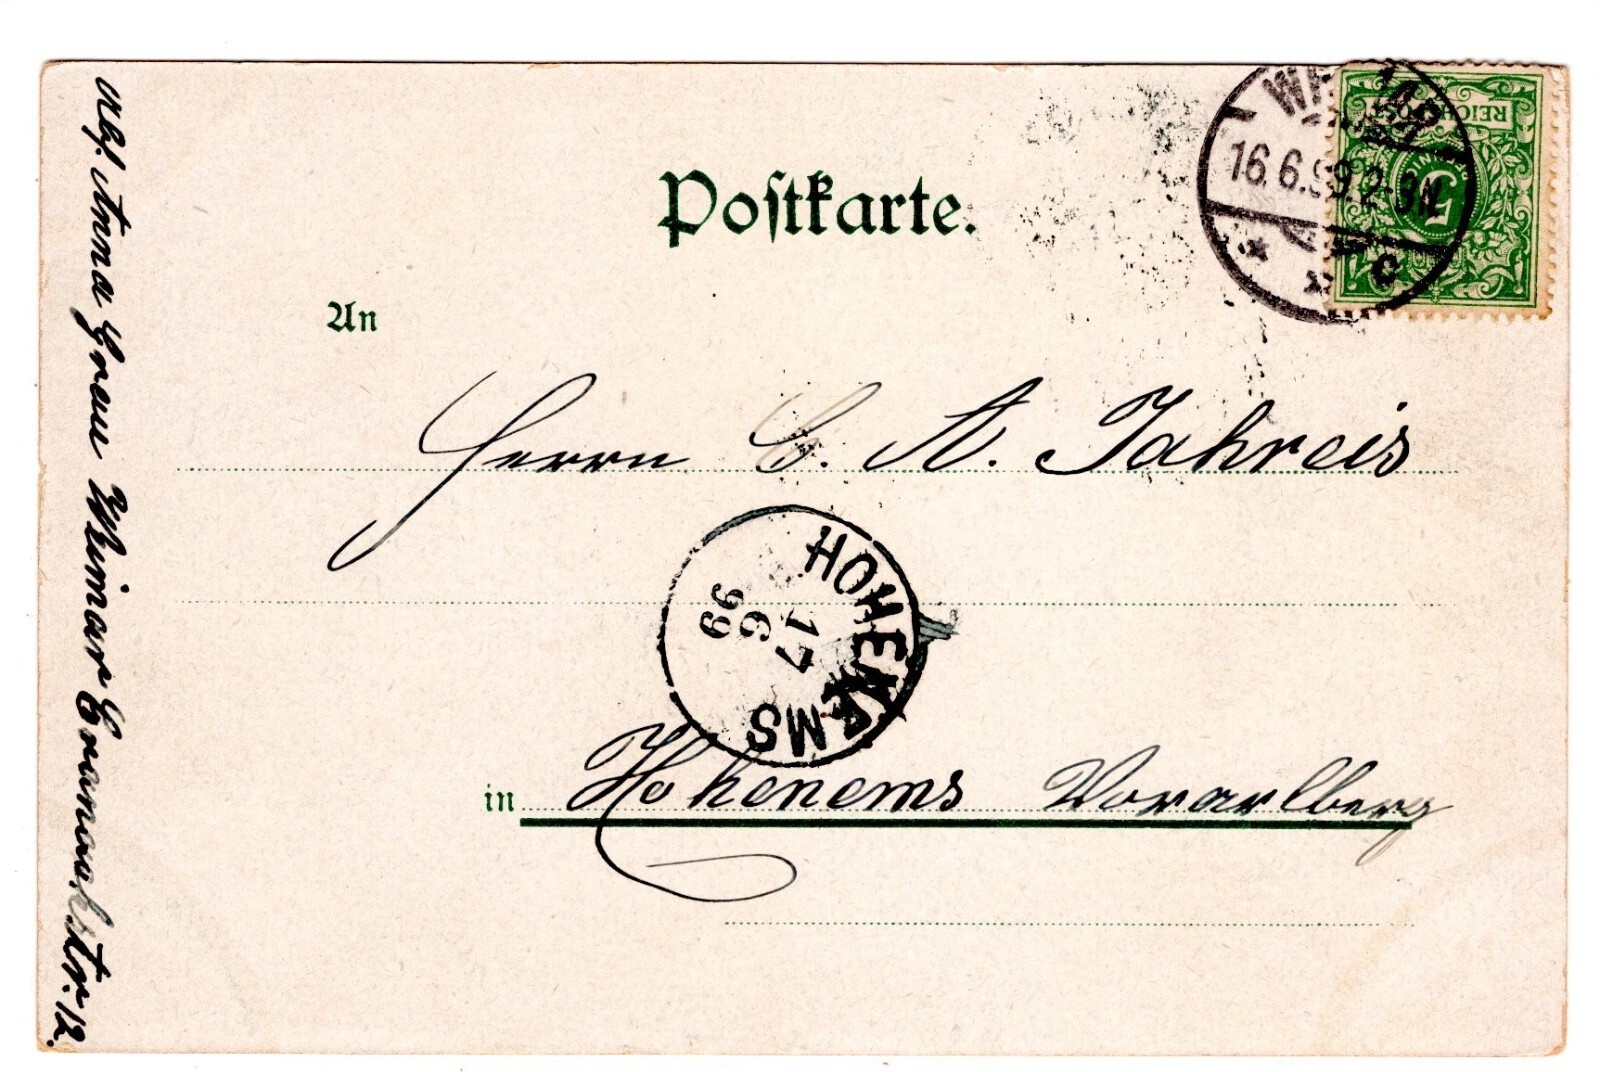 Postkarte.
WEIMAR
16.6.99. 2-3N.
* *
* C
REICHSPOST
5
An
Herrn C. A. Jahreis
HOHENEMS
17
6
99
in Hohenems Vorarlberg
Abs. Anna Grau Weimar Cranachstr. 12.